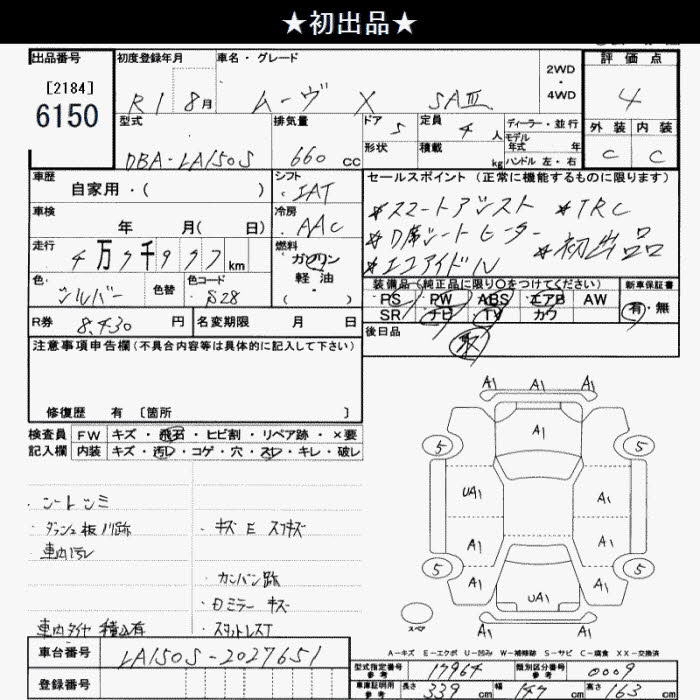 ★初出品★
出品番号
[2184]
6150
初度登録年月
R1 8月
車名・グレード
ムーヴ X SAⅢ
2WD
・
4WD
評価点
4
型式
DBA-LA150S
排気量
660 cc
ドア 5
定員 4 人
形状
積載 kg
ディーラー・並行
モデル
年式 年
ハンドル 左・右
外装 内装
C C
車歴
自家用・( )
シフト
IAT
車検
年 月( 日)
冷房
AAC
走行
4万7千937km
燃料
ガソリン
軽油
( )
色
シルバー
色替
色コード
S28
R券 8,430 円
名変期限 月 日
セールスポイント (正常に機能するものに限ります)
*スマートアシスト *TRC
*D席シートヒーター *初出品
*エコアイドル
装備品(純正品に限り○をつけてください)
PS PW ABS エアB AW
SR ナビ TV カワ
新車保証書
有・無
後日品
取
注意事項申告欄(不具合内容等は具体的に記入して下さい)
修復歴 有 [箇所 ]
検査員 FW キズ・飛石・ヒビ割・リペア跡・×要
記入欄 内装 キズ・汚レ・コゲ・穴・スレ・キレ・破レ
・シートシミ
・ダッシュ板ハリ跡
・キズ E スリキズ
・車内汚レ
・カンバン跡
・Dミラーキズ
車内タイヤ積込有
・スタットレスT
A1 A1 A1
A1
5 5
UA1 A1
A1 A1
5 5
A1 A1
UA1
A1 A1 A1
スペア
A－キズ E－エクボ U－凹み W－補修跡 S－サビ C－腐食 XX－交換済
車台番号 LA150S-2027651
登録番号
型式指定番号
参考
17964
類別区分番号
参考
0009
車庫証明用
参考
長さ 339 cm 幅 147 cm 高さ 163 cm